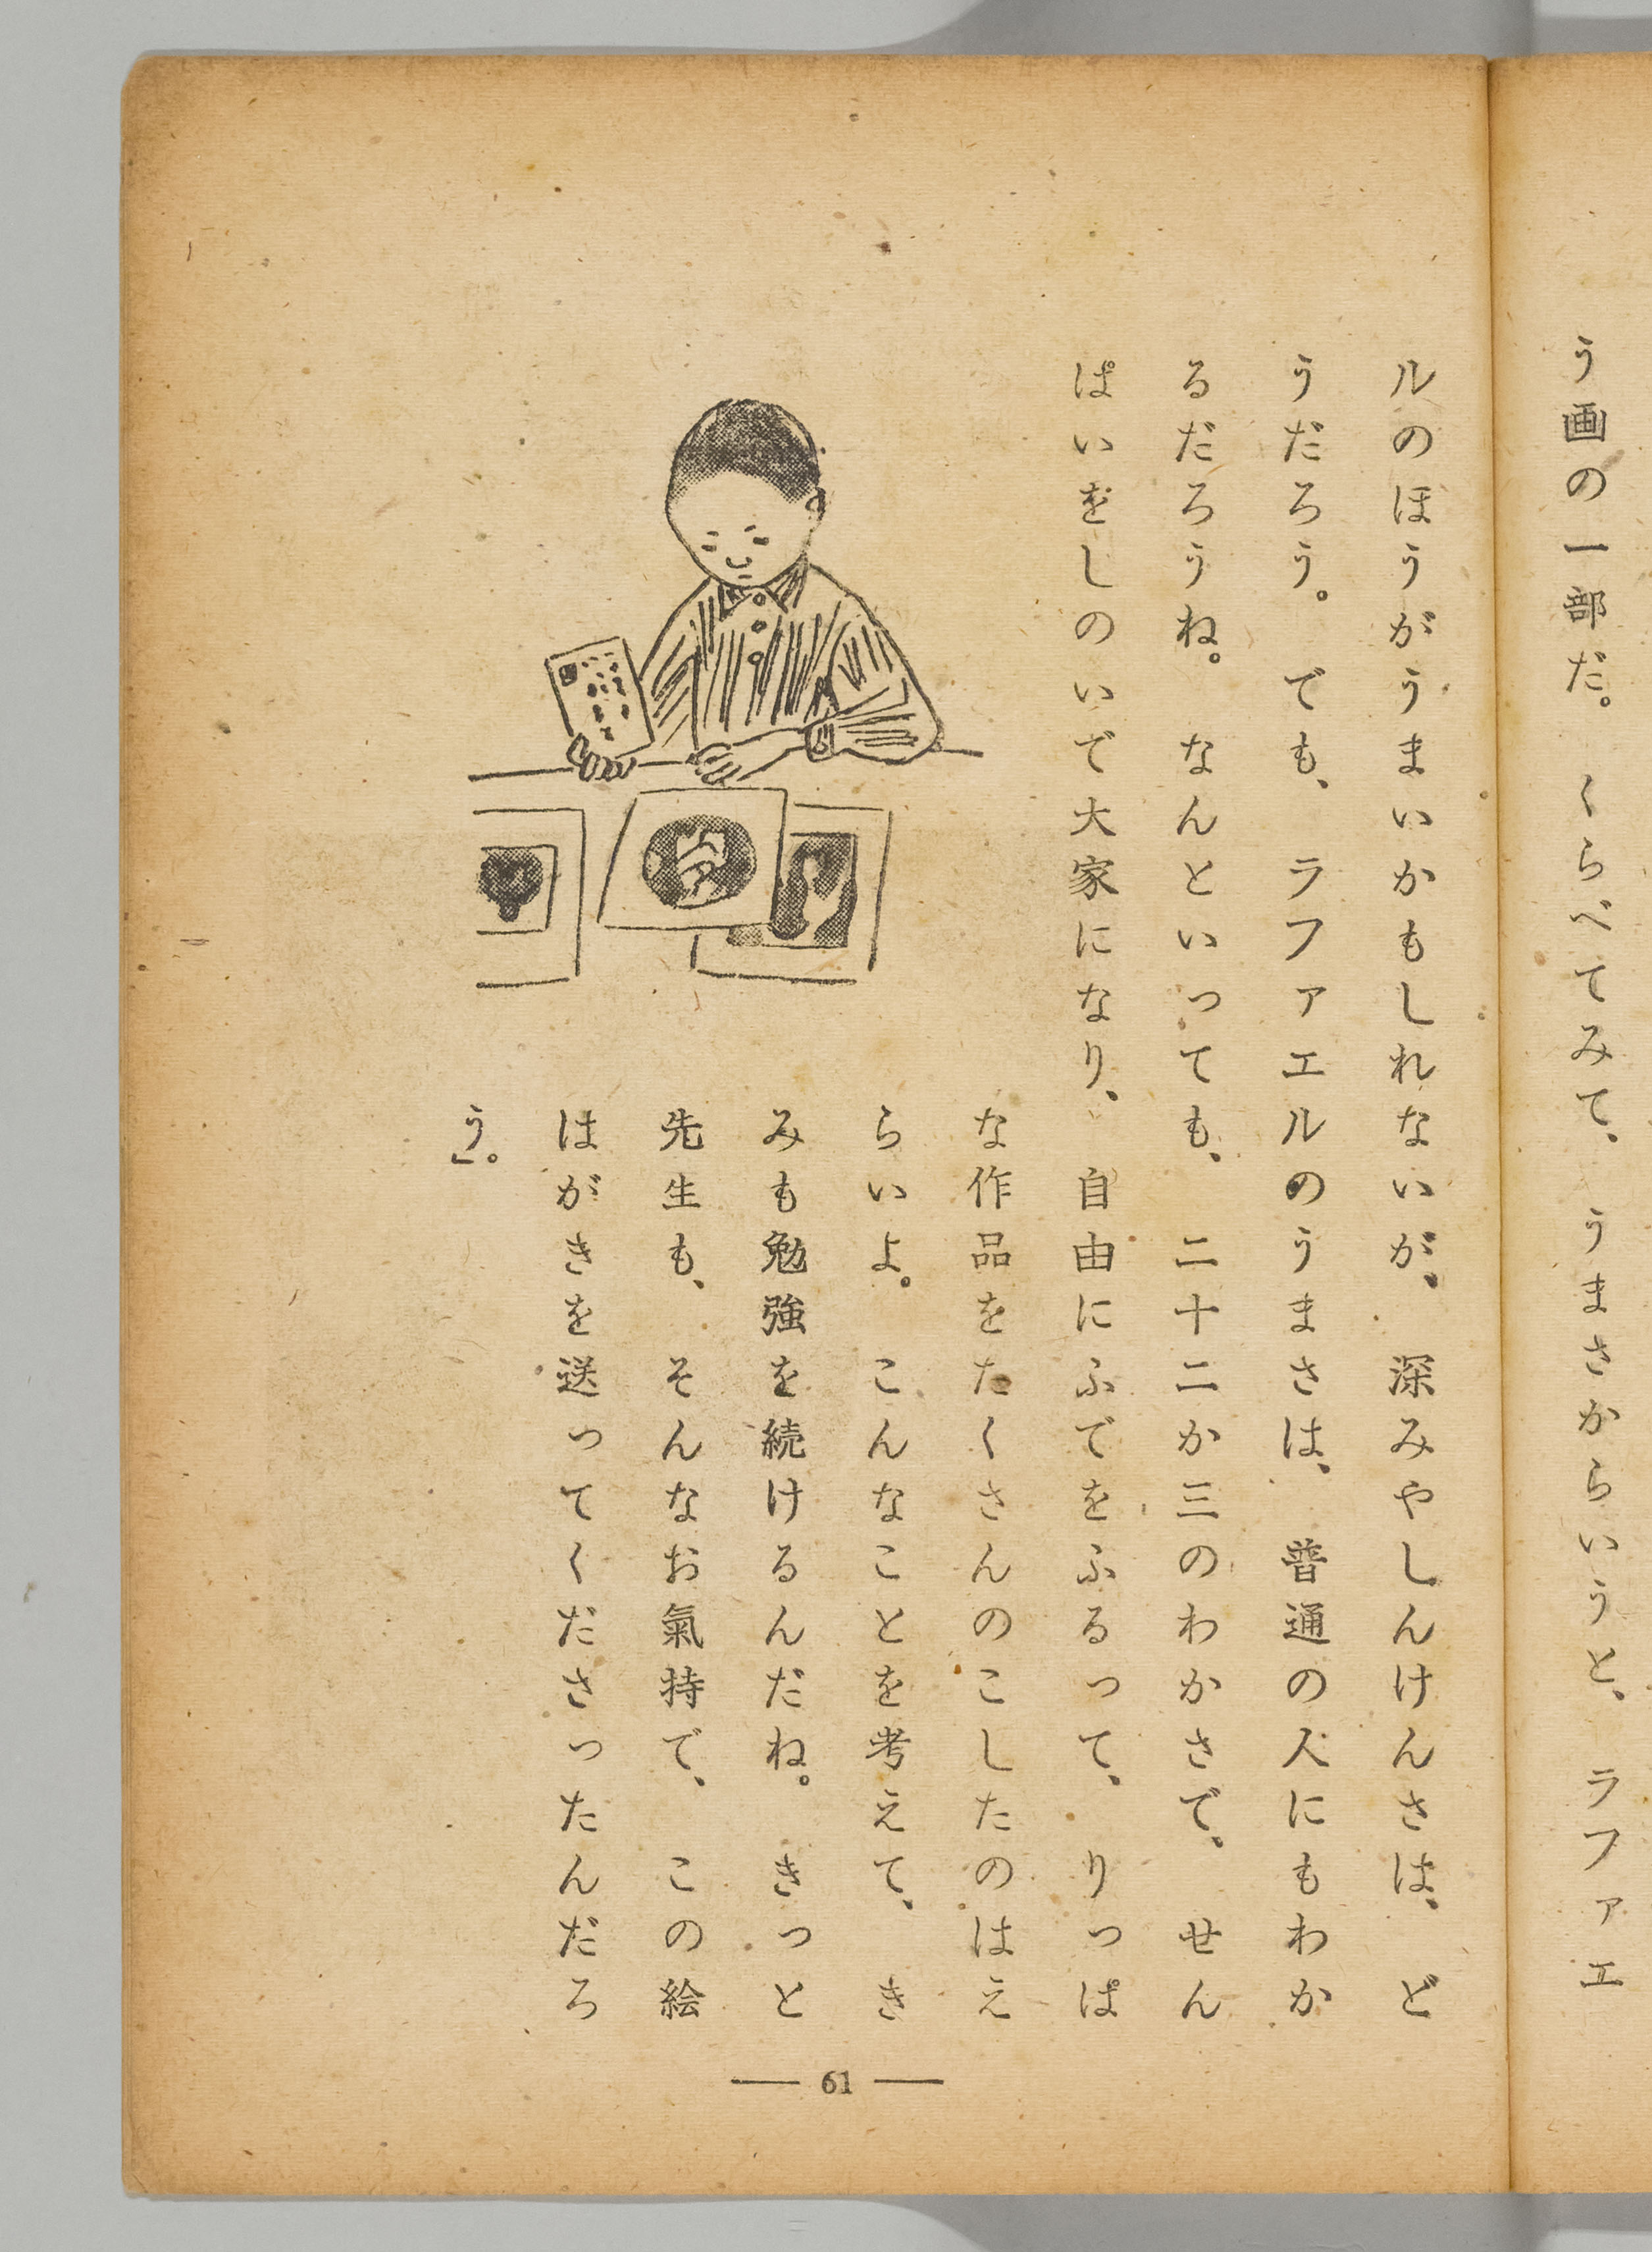 う画の一部だ。　くらべてみて、　うまさからいうと、　ラファエ
ルのほうがうまいかもしれないが、　深みやしんけんさは、　ど
うだろう。　でも、　ラファエルのうまさは、　普通の人にもわか
るだろうね。　なんといっても、　二十二か三のわかさで、　せん
ぱいをしのいで大家になり、　自由にふでをふるって、　りっぱ
な作品をたくさんのこしたのはえ
らいよ。　こんなことを考えて、　き
みも勉強を続けるんだね。　きっと
先生も、　そんなお氣持で、　この絵
はがきを送ってくださったんだろ
う」。
— 61 —